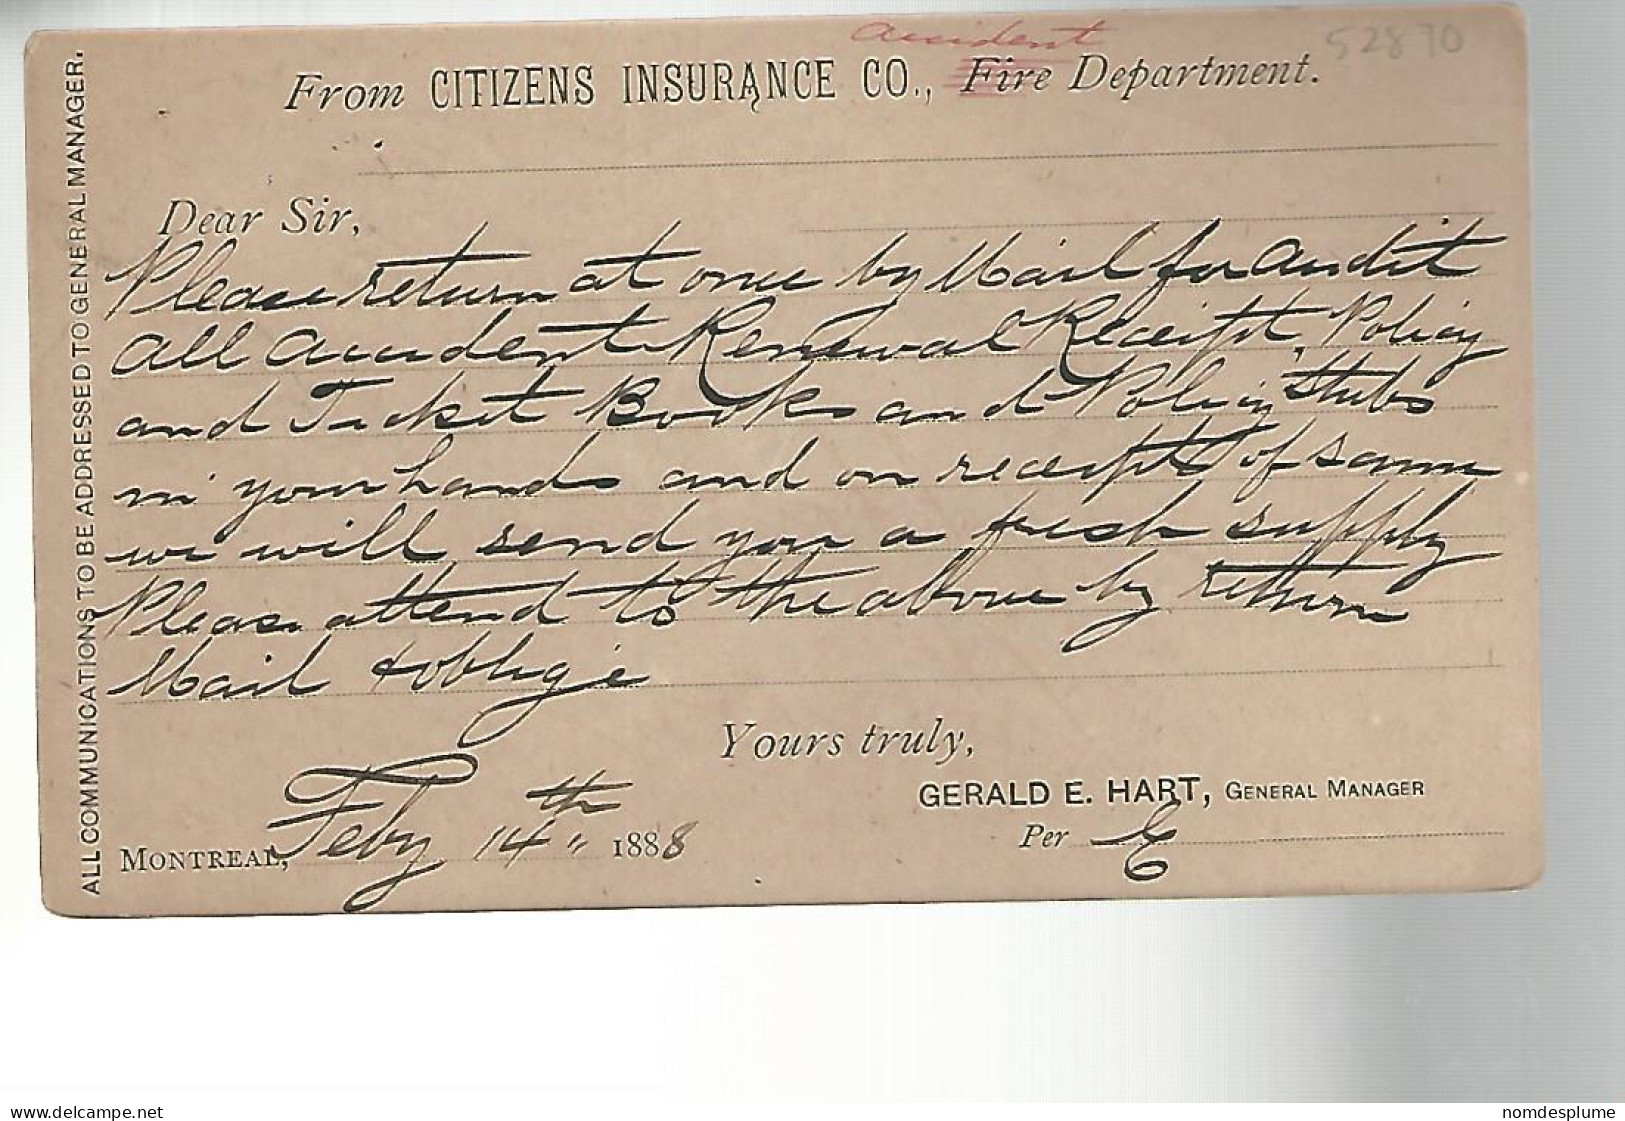 accident
52870
From CITIZENS INSURANCE CO., Fire Department.
Dear Sir,
Please return at once by Mail for audit
all accident Renewal Receipt, Policy
and Ticket Books and Policy Stubs
in your hands and on receipt of same
we will send you a fresh supply
Please attend to the above by return
Mail & oblige
Yours truly,
GERALD E. HART, GENERAL MANAGER
Per E
MONTREAL, Feby 14th 1888
ALL COMMUNICATIONS TO BE ADDRESSED TO GENERAL MANAGER.
delcampe.net
nomdesplume